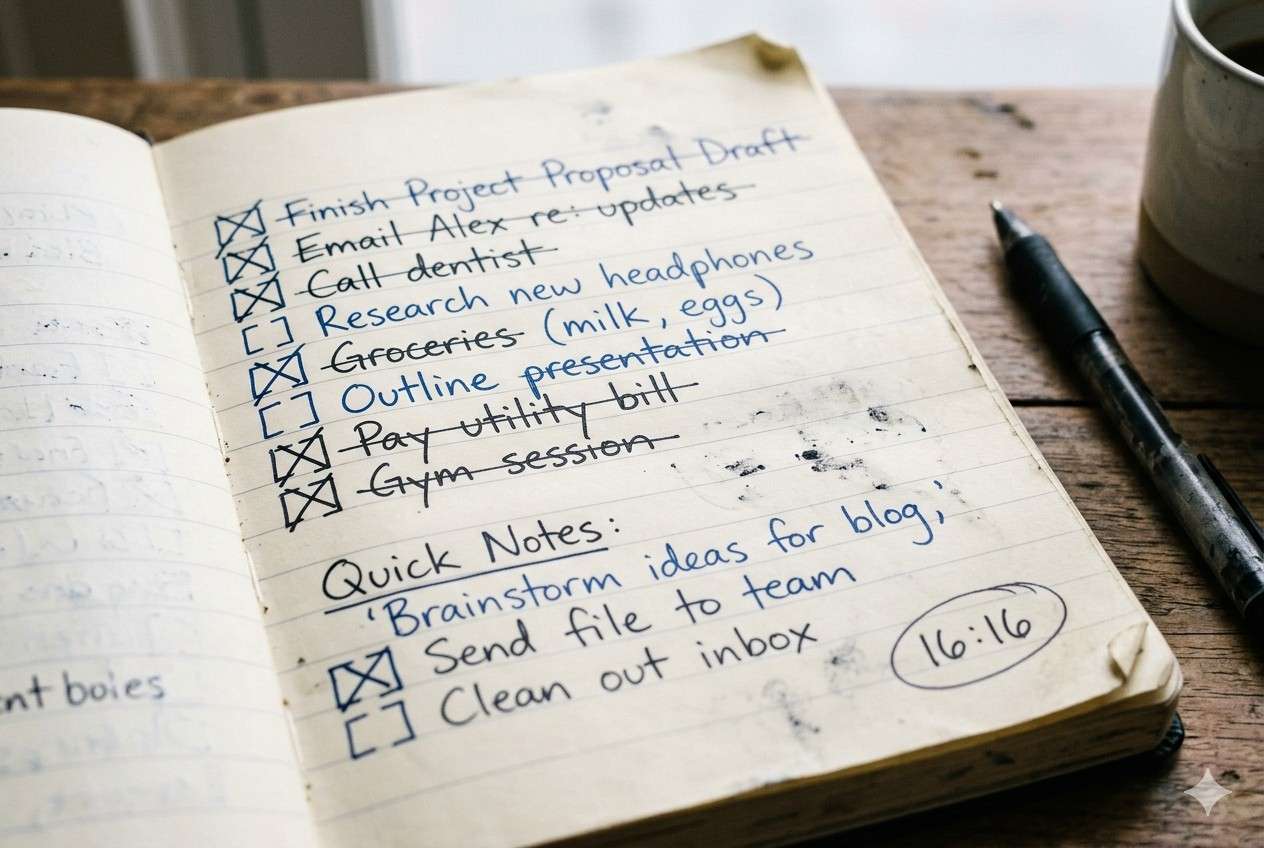 Finish Project Proposal Draft
Email Alex re: updates
Call dentist
Research new headphones
Groceries (milk, eggs)
Outline presentation
Pay utility bill
Gym session
Quick Notes:
'Brainstorm ideas for blog,'
Send file to team
Clean out inbox
16:16